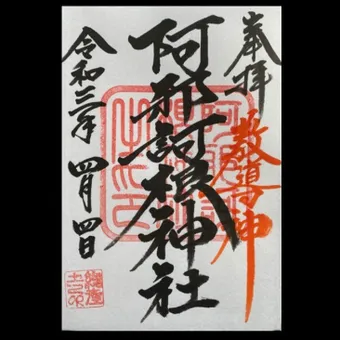 奉拝
教導神
阿那訶根神社
令和三年 四月四日